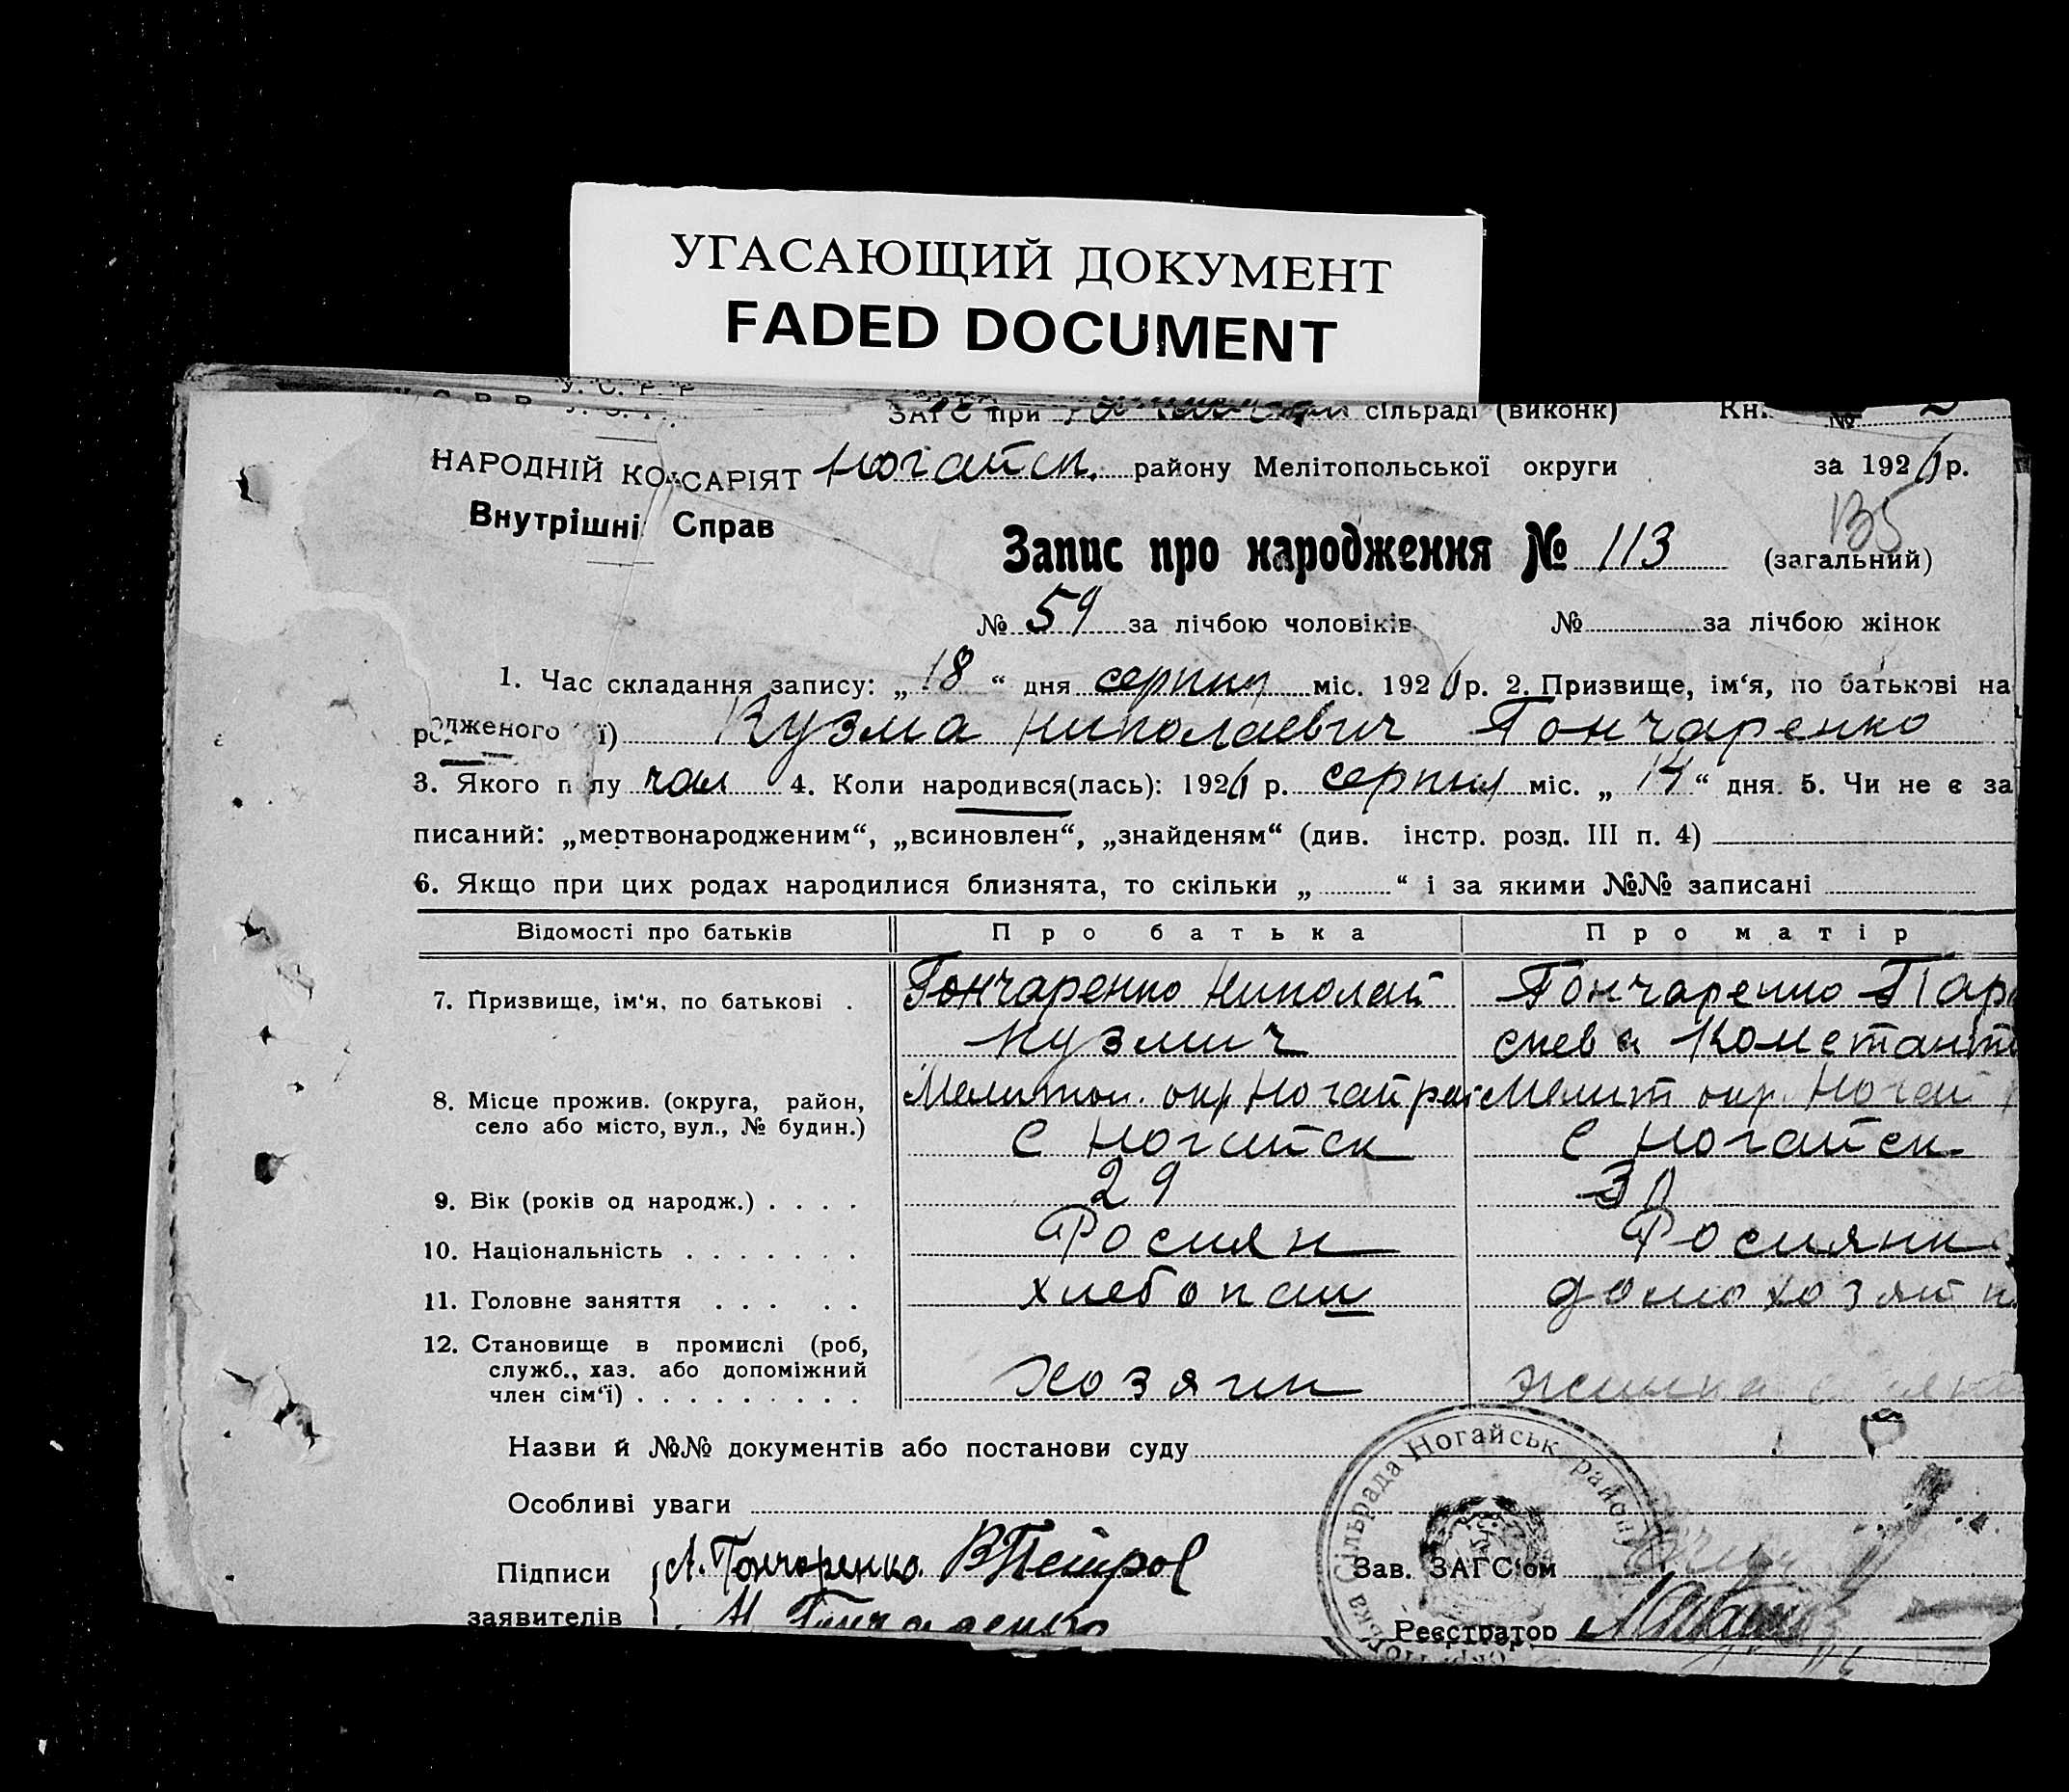 УГАСАЮЩИЙ ДОКУМЕНТ
FADED DOCUMENT
У. С. Р. Р
ЗАГС при сільраді (виконк) Кн. №
НАРОДНІЙ КОМІСАРІЯТ Ногайск. району Мелітопольської округи за 192 р.
Внутрішні Справ
135
Запис про народження № 113 (загальний)
№ 59 за лічбою чоловіків № за лічбою жінок
1. Час складання запису: „ 18 “ дня серпня міс. 192 р. 2. Призвище, ім‘я, по батькові на
родженого ї) Кузма Николаевич Гончаренко
3. Якого полу чол 4. Коли народився(лась): 192 р. серпня міс. „ 14 “ дня. 5. Чи не є за
писаний: „мертвонародженим“, „всиновлен“, „знайденям“ (див. інстр. розд. III п. 4)
6. Якщо при цих родах народилися близнята, то скільки „ “ і за якими №№ записані
Відомості про батьків Про батька Про матір
7. Призвище, ім‘я, по батькові . Гончаренко Николай Гончаренко Пара
Кузмич скева Констант
8. Місце прожив. (округа, район, Мелитоп. окр Ногай рай Мелит окр. Ногай р
село або місто, вул., № будин.) С Ногайск С Ногайск.
9. Вік (років од народж.) . . . . 29 30
10. Національність . . . . . . . Росиян Росиянка
11. Головне заняття . . . . . хлебопаш домохозяйк
12. Становище в промислі (роб,
служб., хаз. або допоміжний
член сім‘ї) . . . . . . . . . Хозяин жинка
Назви й №№ документів або постанови суду
Особливі уваги
Сільрада Ногайськ району
Підписи Л. Гончаренко. В Петров Зав. ЗАГС‘ом
заявителів Н. Гончаренко Реєстратор